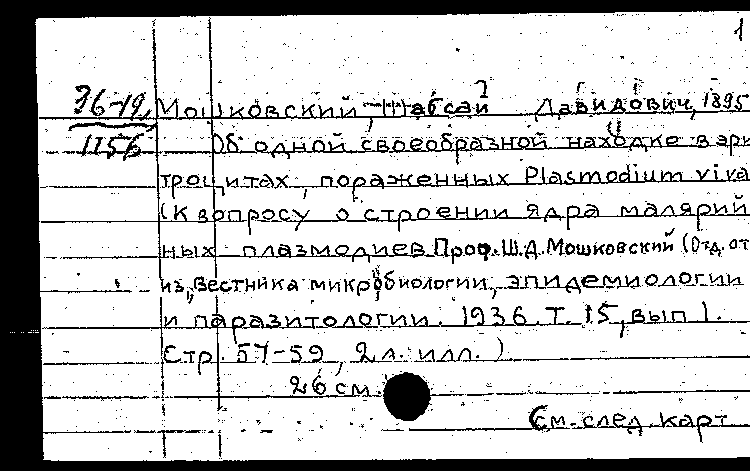 1
36-19,
1156
Мошковский, Шабсай Давидович, 1895
Об одной своеобразной находке в эри
троцитах, пораженных Plasmodium viva
(К вопросу о строении ядра малярий
ных плазмодиев Проф. Ш.Д. Мошковский (Отд. от
из „Вестника микробиологии, эпидемиологии
и паразитологии. 1936. Т. 15, вып 1.
Стр. 57-59, 2 л. илл. )
26 см
См. след. карт